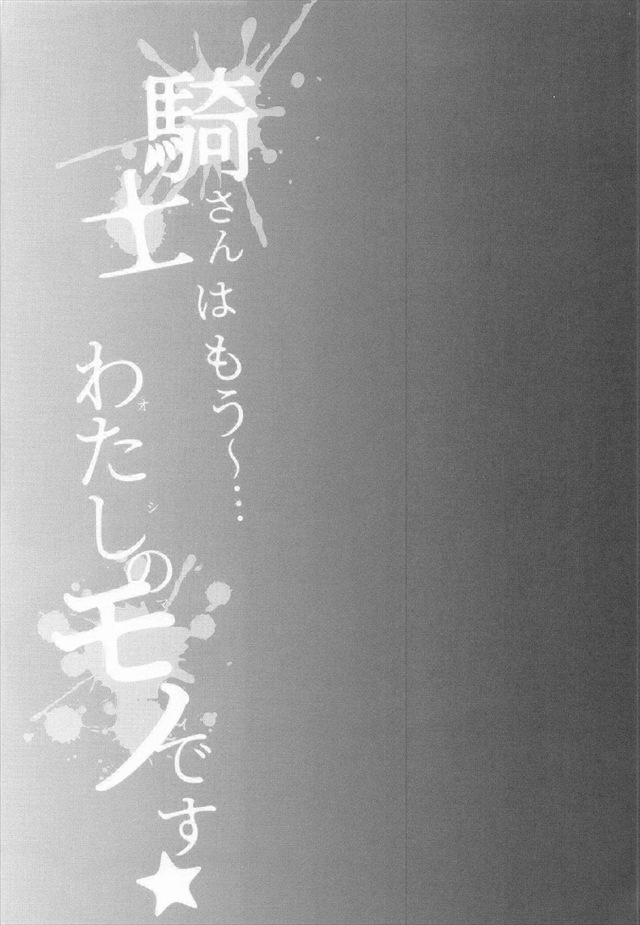 騎士さんはもう〜…
わたしのモノです★
オシ